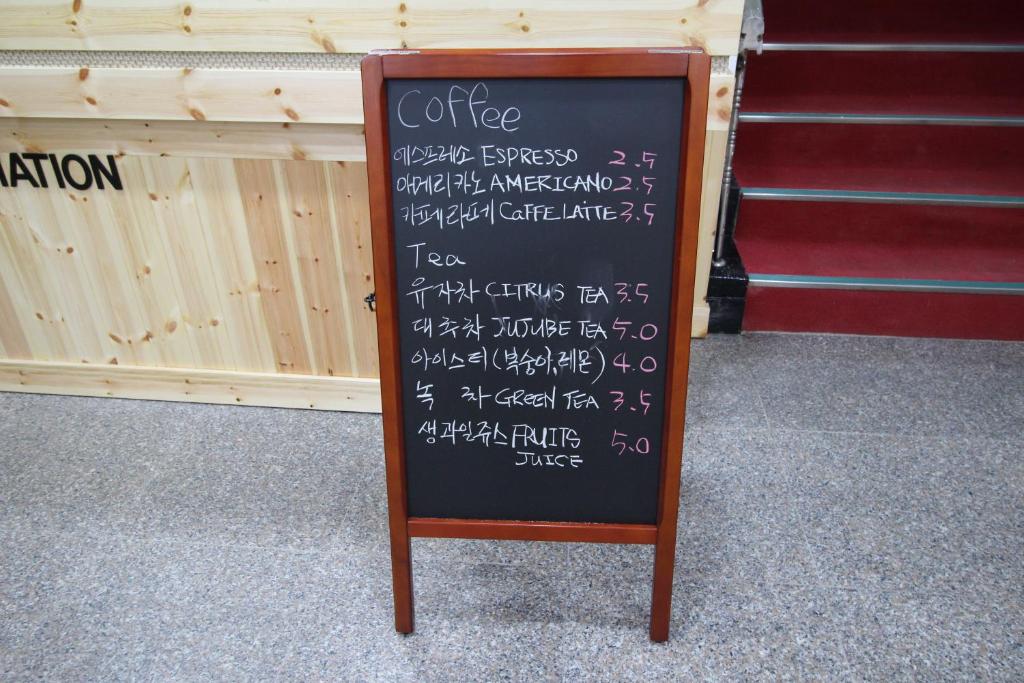 MATION
Coffee
에스프레소 ESPRESSO 2.5
아메리카노 AMERICANO 2.5
카페라떼 CaFFE LATTE 3.5
Tea
유자차 CITRUS TEA 3.5
대추차 JUJUBE TEA 5.0
아이스티(복숭아,레몬) 4.0
녹 차 GREEN TEA 3.5
생과일쥬스 FRUITS 5.0
JUICE